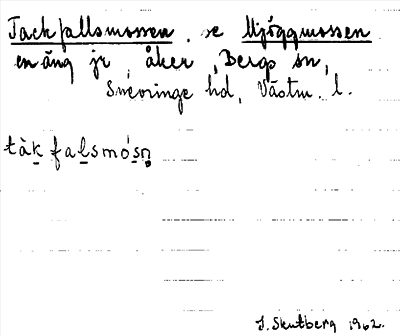 Tackfallsmossen, se Mjöggmossen
en äng jr åker, Bergs sn,
Snevringe hd, Västm. l.
tàk falsmós̱n̥
J. Skutberg 1962.